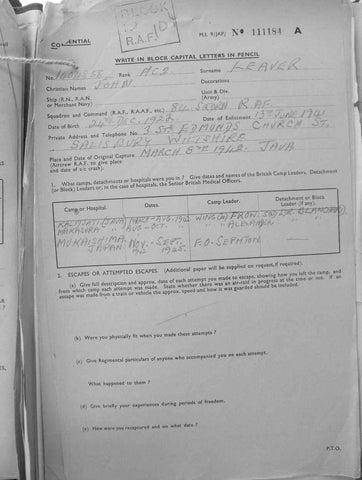 BLOCK
R.A.F.
M.I. 9/JAP/ Nº 111184 A
WRITE IN BLOCK CAPITAL LETTERS IN PENCIL
No. Rank Surname LEAVER
Christian Names JOHN Decorations
Ship (R.N., R.A.N. or Merchant Navy) Unit & Div. (Army)
Squadron and Command (R.A.A.F., etc.) 84 SQDN RAF
Date of Birth 24TH DEC. 1922 Date of Enlistment 13TH JUNE 1941
Private Address and Telephone No. 3 ST EDMUNDS CHURCH ST.
SALISBURY WILTSHIRE
Place and Date of Original Capture MARCH 8TH 1942. JAVA
(Aircrew R.A.F. to give place and date of a/c crash).
1. What camps, detachments or hospitals were you in ? Give dates and names of the British Camp Leaders, Detachment (or Block) Leaders or, in case of hospitals, the Senior British Medical Officers.
Camp or Hospital. Dates. Camp Leader. Detachment or Block Leader (if any).
KALIJATI (JAVA) 1942
" AUG - OCT. "
MUKAISHIMA, JAPAN NOV. - SEPT. 1945. F.O. SEPHTON
2. ESCAPES OR ATTEMPTED ESCAPES. (Additional paper will be supplied on request, if required).
(a) Give full description and approx. date of each attempt you made to escape, showing how you left the camp, and from which camp each attempt was made. State whether there was an air-raid in progress at the time or not. If escape was made from a train or vehicle the approx. speed and how it was guarded should be included.
(b) Were you physically fit when you made these attempts ?
(c) Give Regimental particulars of anyone who accompanied you on each attempt.
What happened to them ?
(d) Give briefly your experiences during periods of freedom.
(e) How were you recaptured and on what date ?
P.T.O.